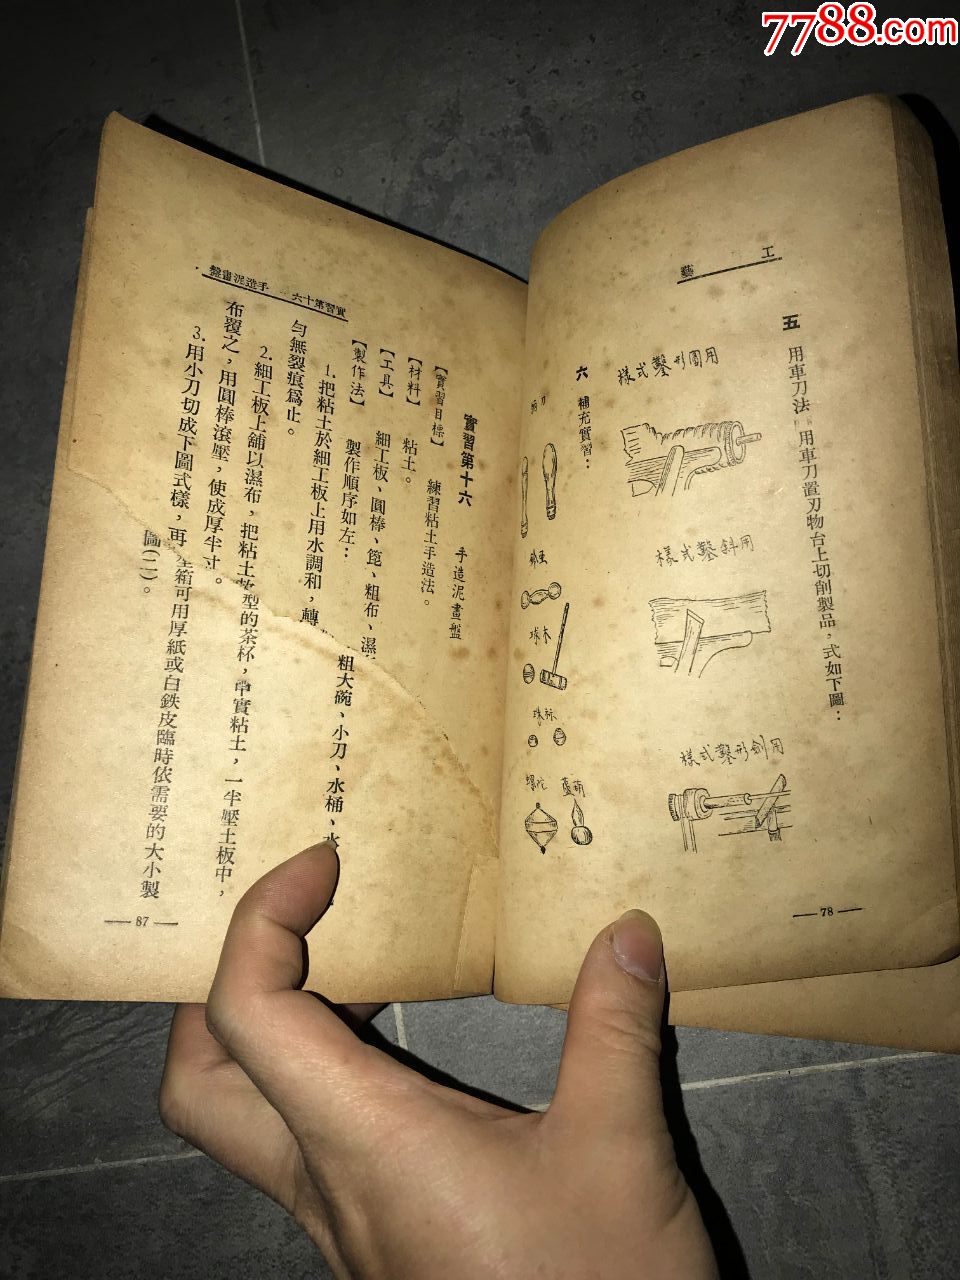 7788.com
工藝
五　用車刀法　用車刀置刃物台上切削製品，式如下圖：
用圓形鑿式樣
用斜鑿式樣
用劍形鑿式樣
六　補充實習：
啞鈴
木球
葫蘆
陀螺
— 78 —
實習第十六　手造泥畫盤
實習第十六　手造泥畫盤
【實習目標】　練習粘土手造法。
【材料】　粘土。
【工具】　細工板、圓棒、篦、粗布、濕
粗大碗、小刀、水桶、水
【製作法】　製作順序如左：
1. 把粘土於細工板上用水調和，轉
勻無裂痕爲止。
2. 細工板上舖以濕布，把粘土
型的茶杯，實粘土，一半壓土板中，
布覆之，用圓棒滾壓，使成厚半寸。
3. 用小刀切成下圖式樣，再
箱可用厚紙或白鉄皮臨時依需要的大小製
圖(二)。
— 87 —